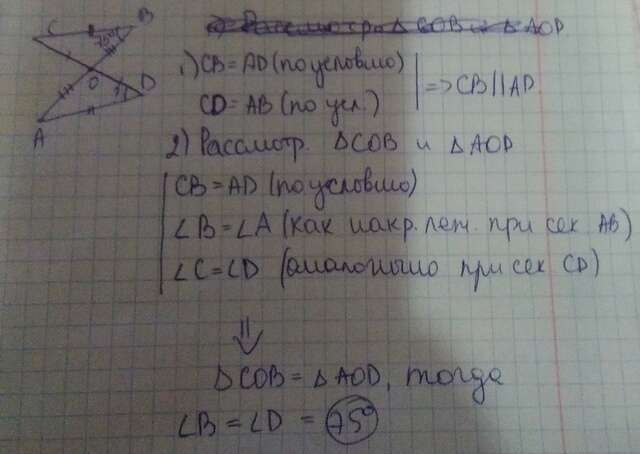 2) Рассмотр. △COB и △AOD
1) CB = AD (по условию)
CD = AB (по усл.)
=> CB || AD
2) Рассмотр. △COB и △AOD
CB = AD (по условию)
∠B = ∠A (как накр. леж. при сек AB)
∠C = ∠D (аналогично при сек CD)
⇓
△COB = △AOD, тогда
∠B = ∠D = 75°
C
B
75°
O
D
?
A